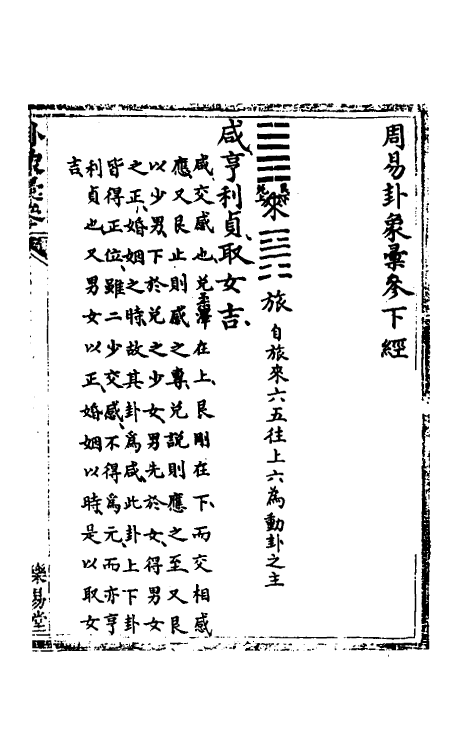 周易卦象彙參下經
䷞ 艮下兌上 來 ䷷ 旅 自旅來六五往上六為動卦之主
咸亨利貞取女吉
咸交感也兌柔澤在上艮剛在下而交相感
應又艮止則感之專兌說則應之至又艮
以少男下於兌之少女男先於女得男女
之正婚姻之時故其卦為咸此卦上下卦
皆得正位雖二少交感不得為元而亦亨
利貞也又男女以正婚姻以時是以取女
吉
樂易堂